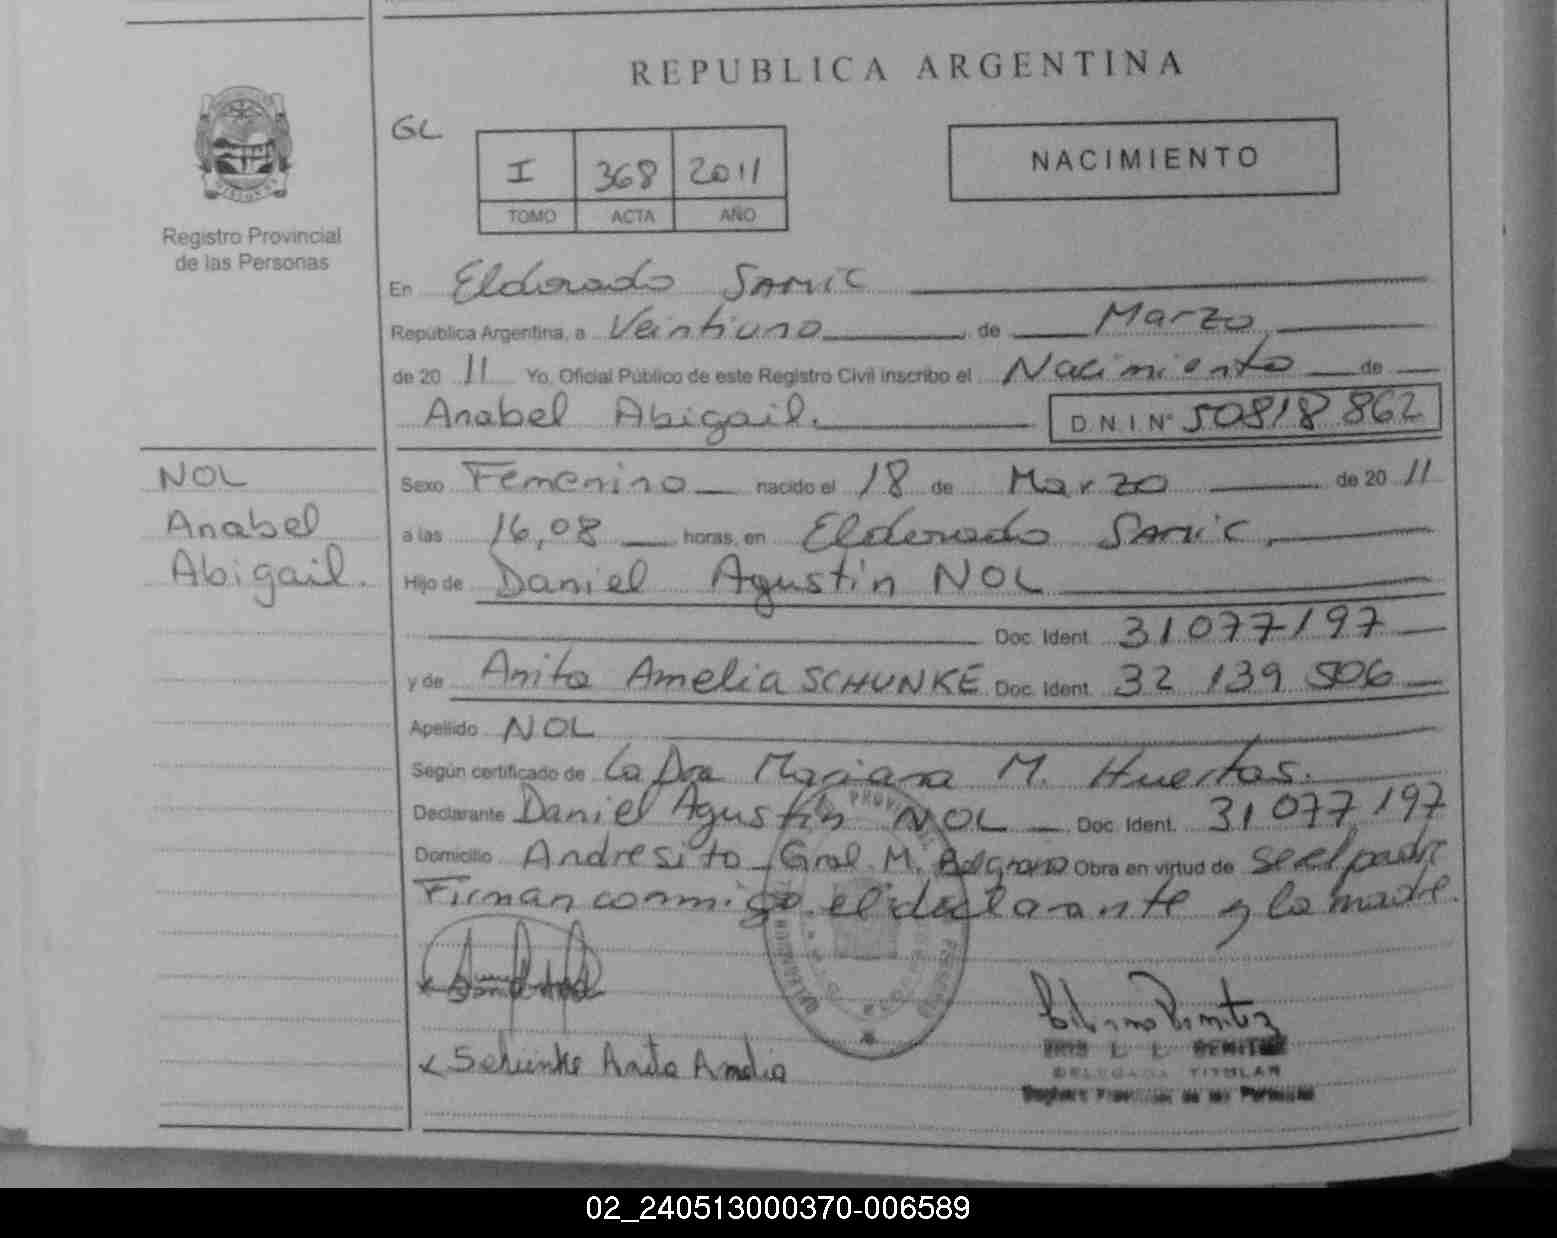 REPUBLICA ARGENTINA
GL
I 368 2011
TOMO ACTA AÑO
NACIMIENTO
Registro Provincial
de las Personas
En Eldorado SAMIC
República Argentina, a Veintiuno de Marzo
de 20 11 Yo, Oficial Público de este Registro Civil inscribo el Nacimiento de
Anabel Abigail. D.N.I Nº 50818 862
NOL
Anabel
Abigail.
Sexo Femenino nacido el 18 de Marzo de 20 11
a las 16,08 horas, en Eldorado SAMIC,
Hijo de Daniel Agustín NOL
Doc. Ident. 31077197
y de Anita Amelia SCHUNKE Doc. Ident. 32 139 506
Apellido NOL
Según certificado de La Dra Mariana M. Huertas.
Declarante Daniel Agustín NOL Doc. Ident. 31 077 197
Domicilio Andresito Gral. M. Belgrano Obra en virtud de ser el padre
Firman conmigo el declarante y la madre.
Schunke Anita Amelia
BENITEZ
DELEGADA TITULAR
Registro Provincial de las Personas
02_240513000370-006589